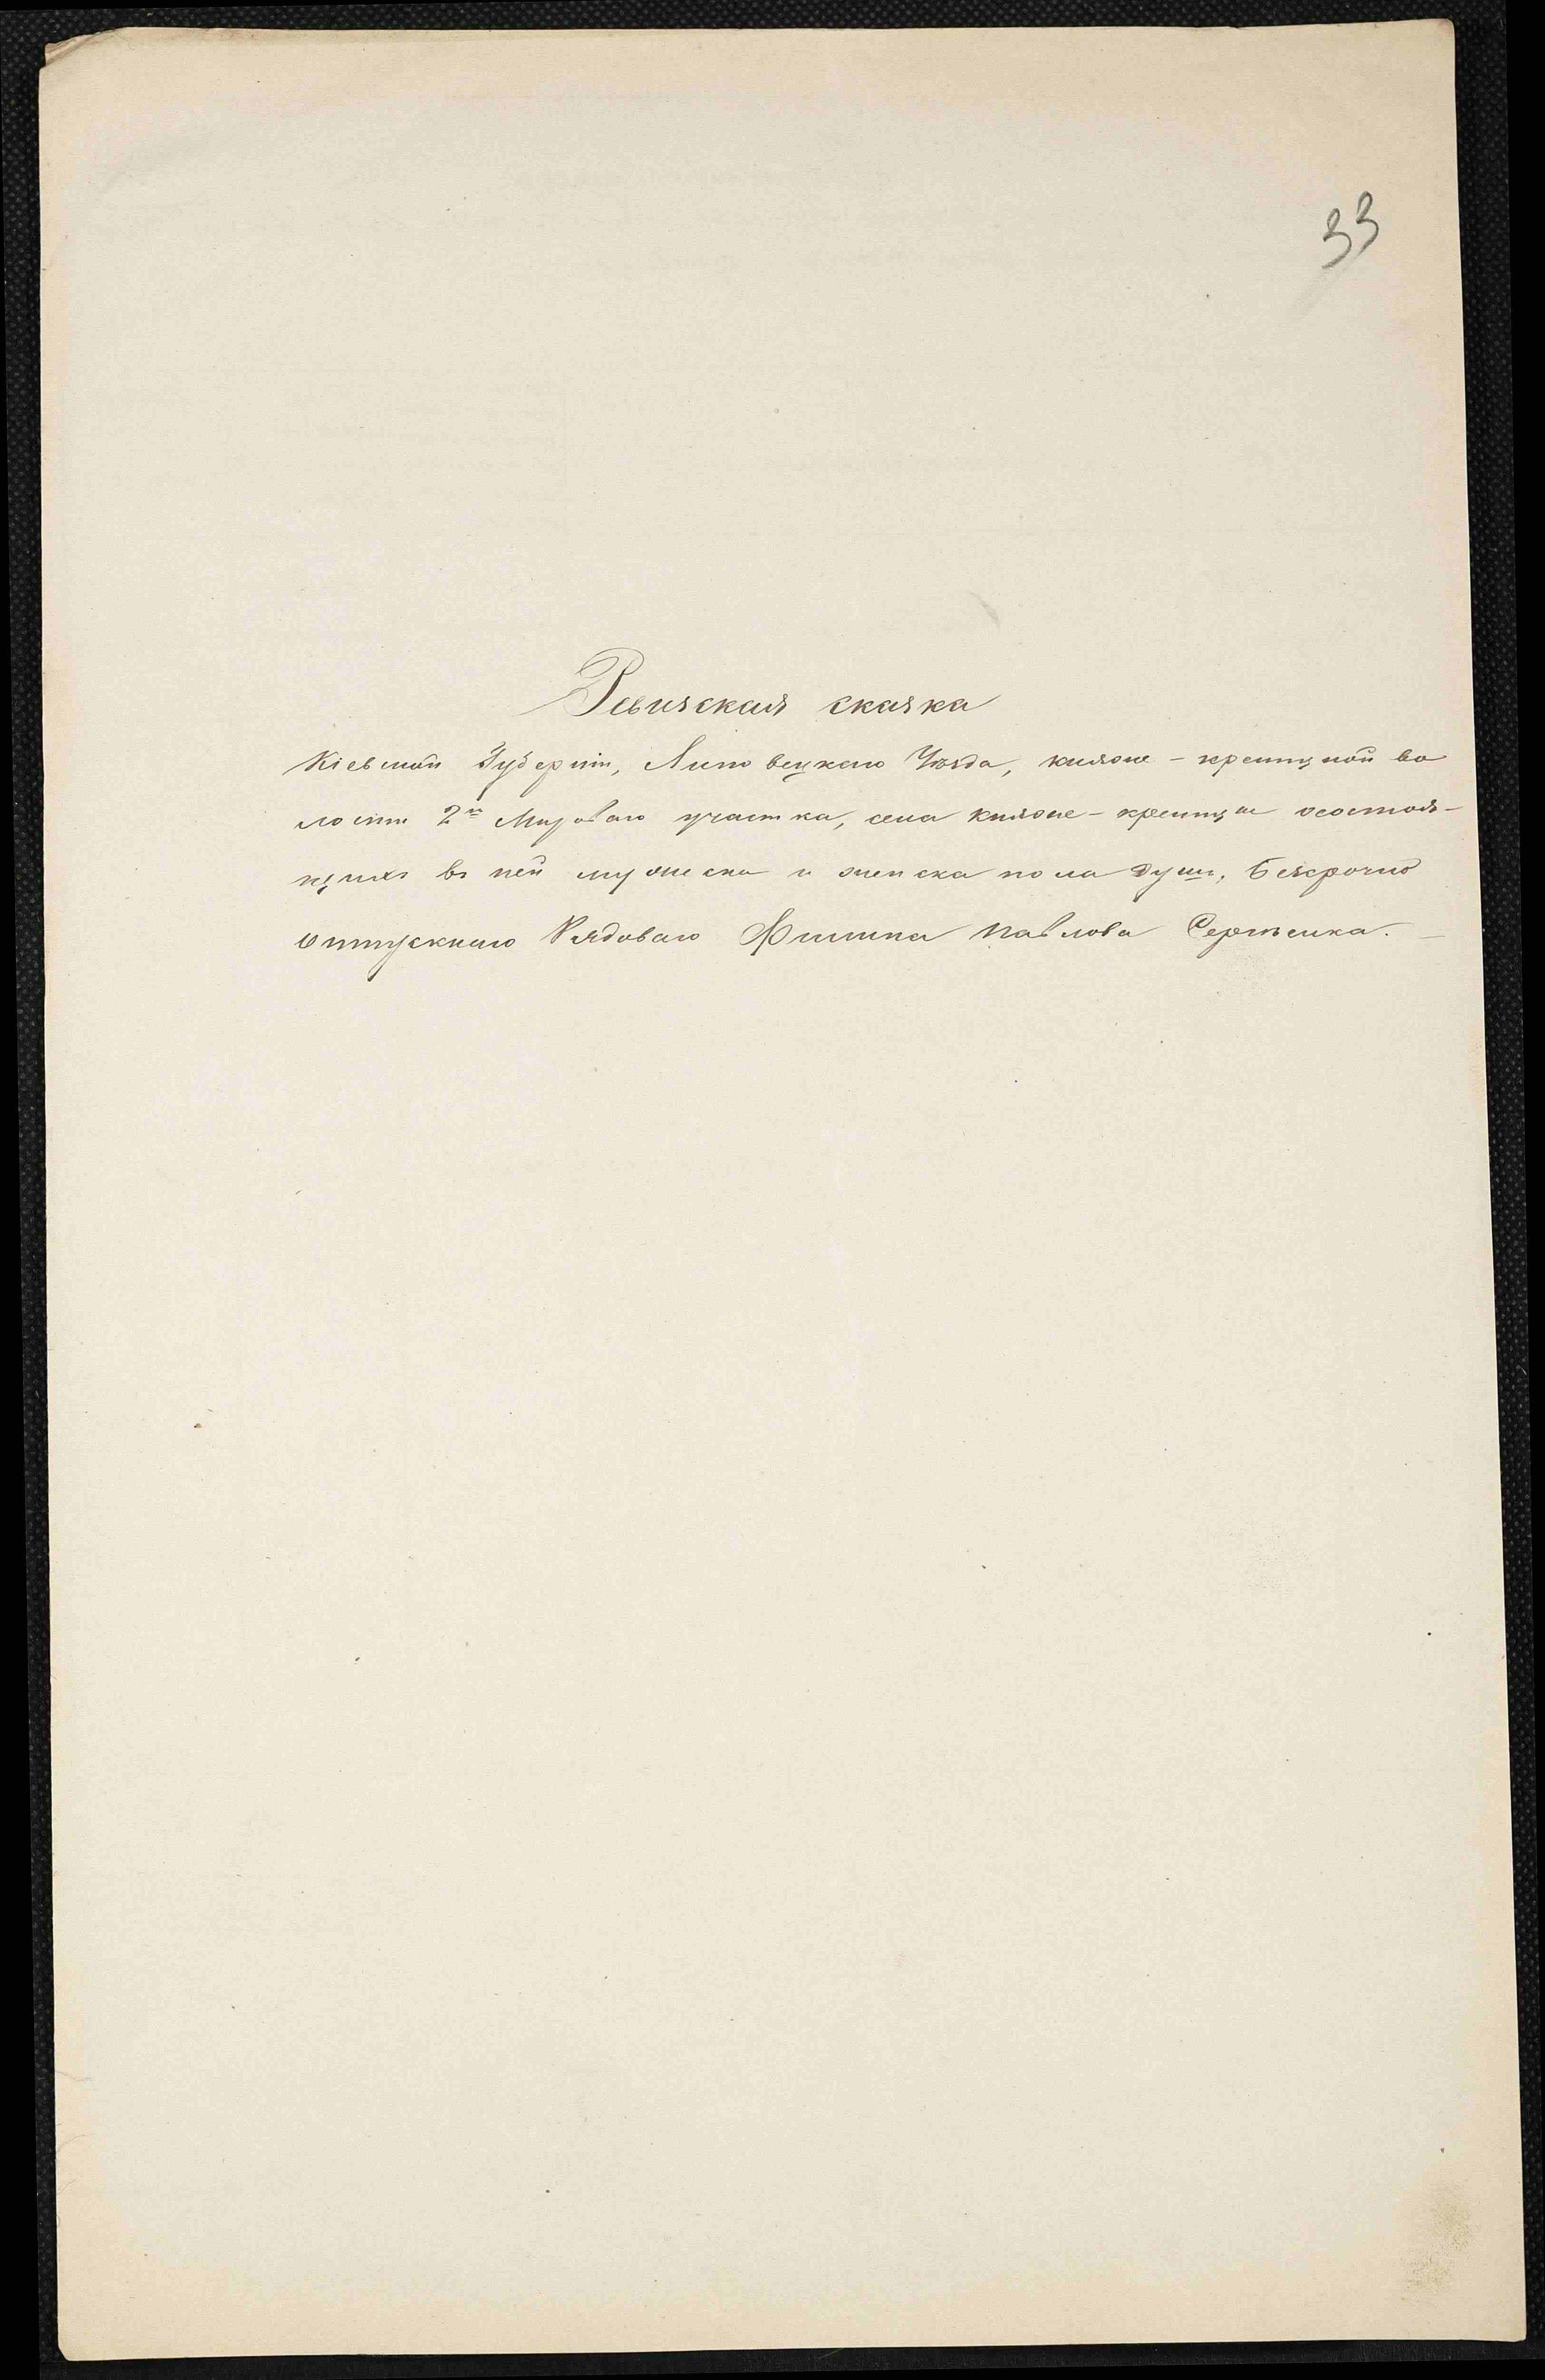 33
Ревизская сказка
Кіевской Губерніи, Липовецкаго Уѣзда, княже-креницкой во
лости 2го Мироваго участка, села княже-креницы осостоя-
щихъ въ ней мужеска и женска пола душ, безсрочно
отпускнаго Рядоваго Филипа Павлова Сергѣенка.